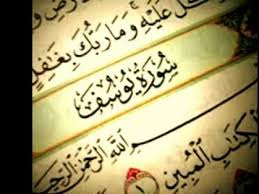 عَلَيْهِ وَمَا رَبُّكَ بِغَٰفِلٍ
سُورَةُ يُوسُفَ
بِسْمِ ٱللَّهِ ٱلرَّحْمَٰنِ ٱلرَّحِيمِ
ٱلْكِتَٰبِ ٱلْمُبِينِ ١